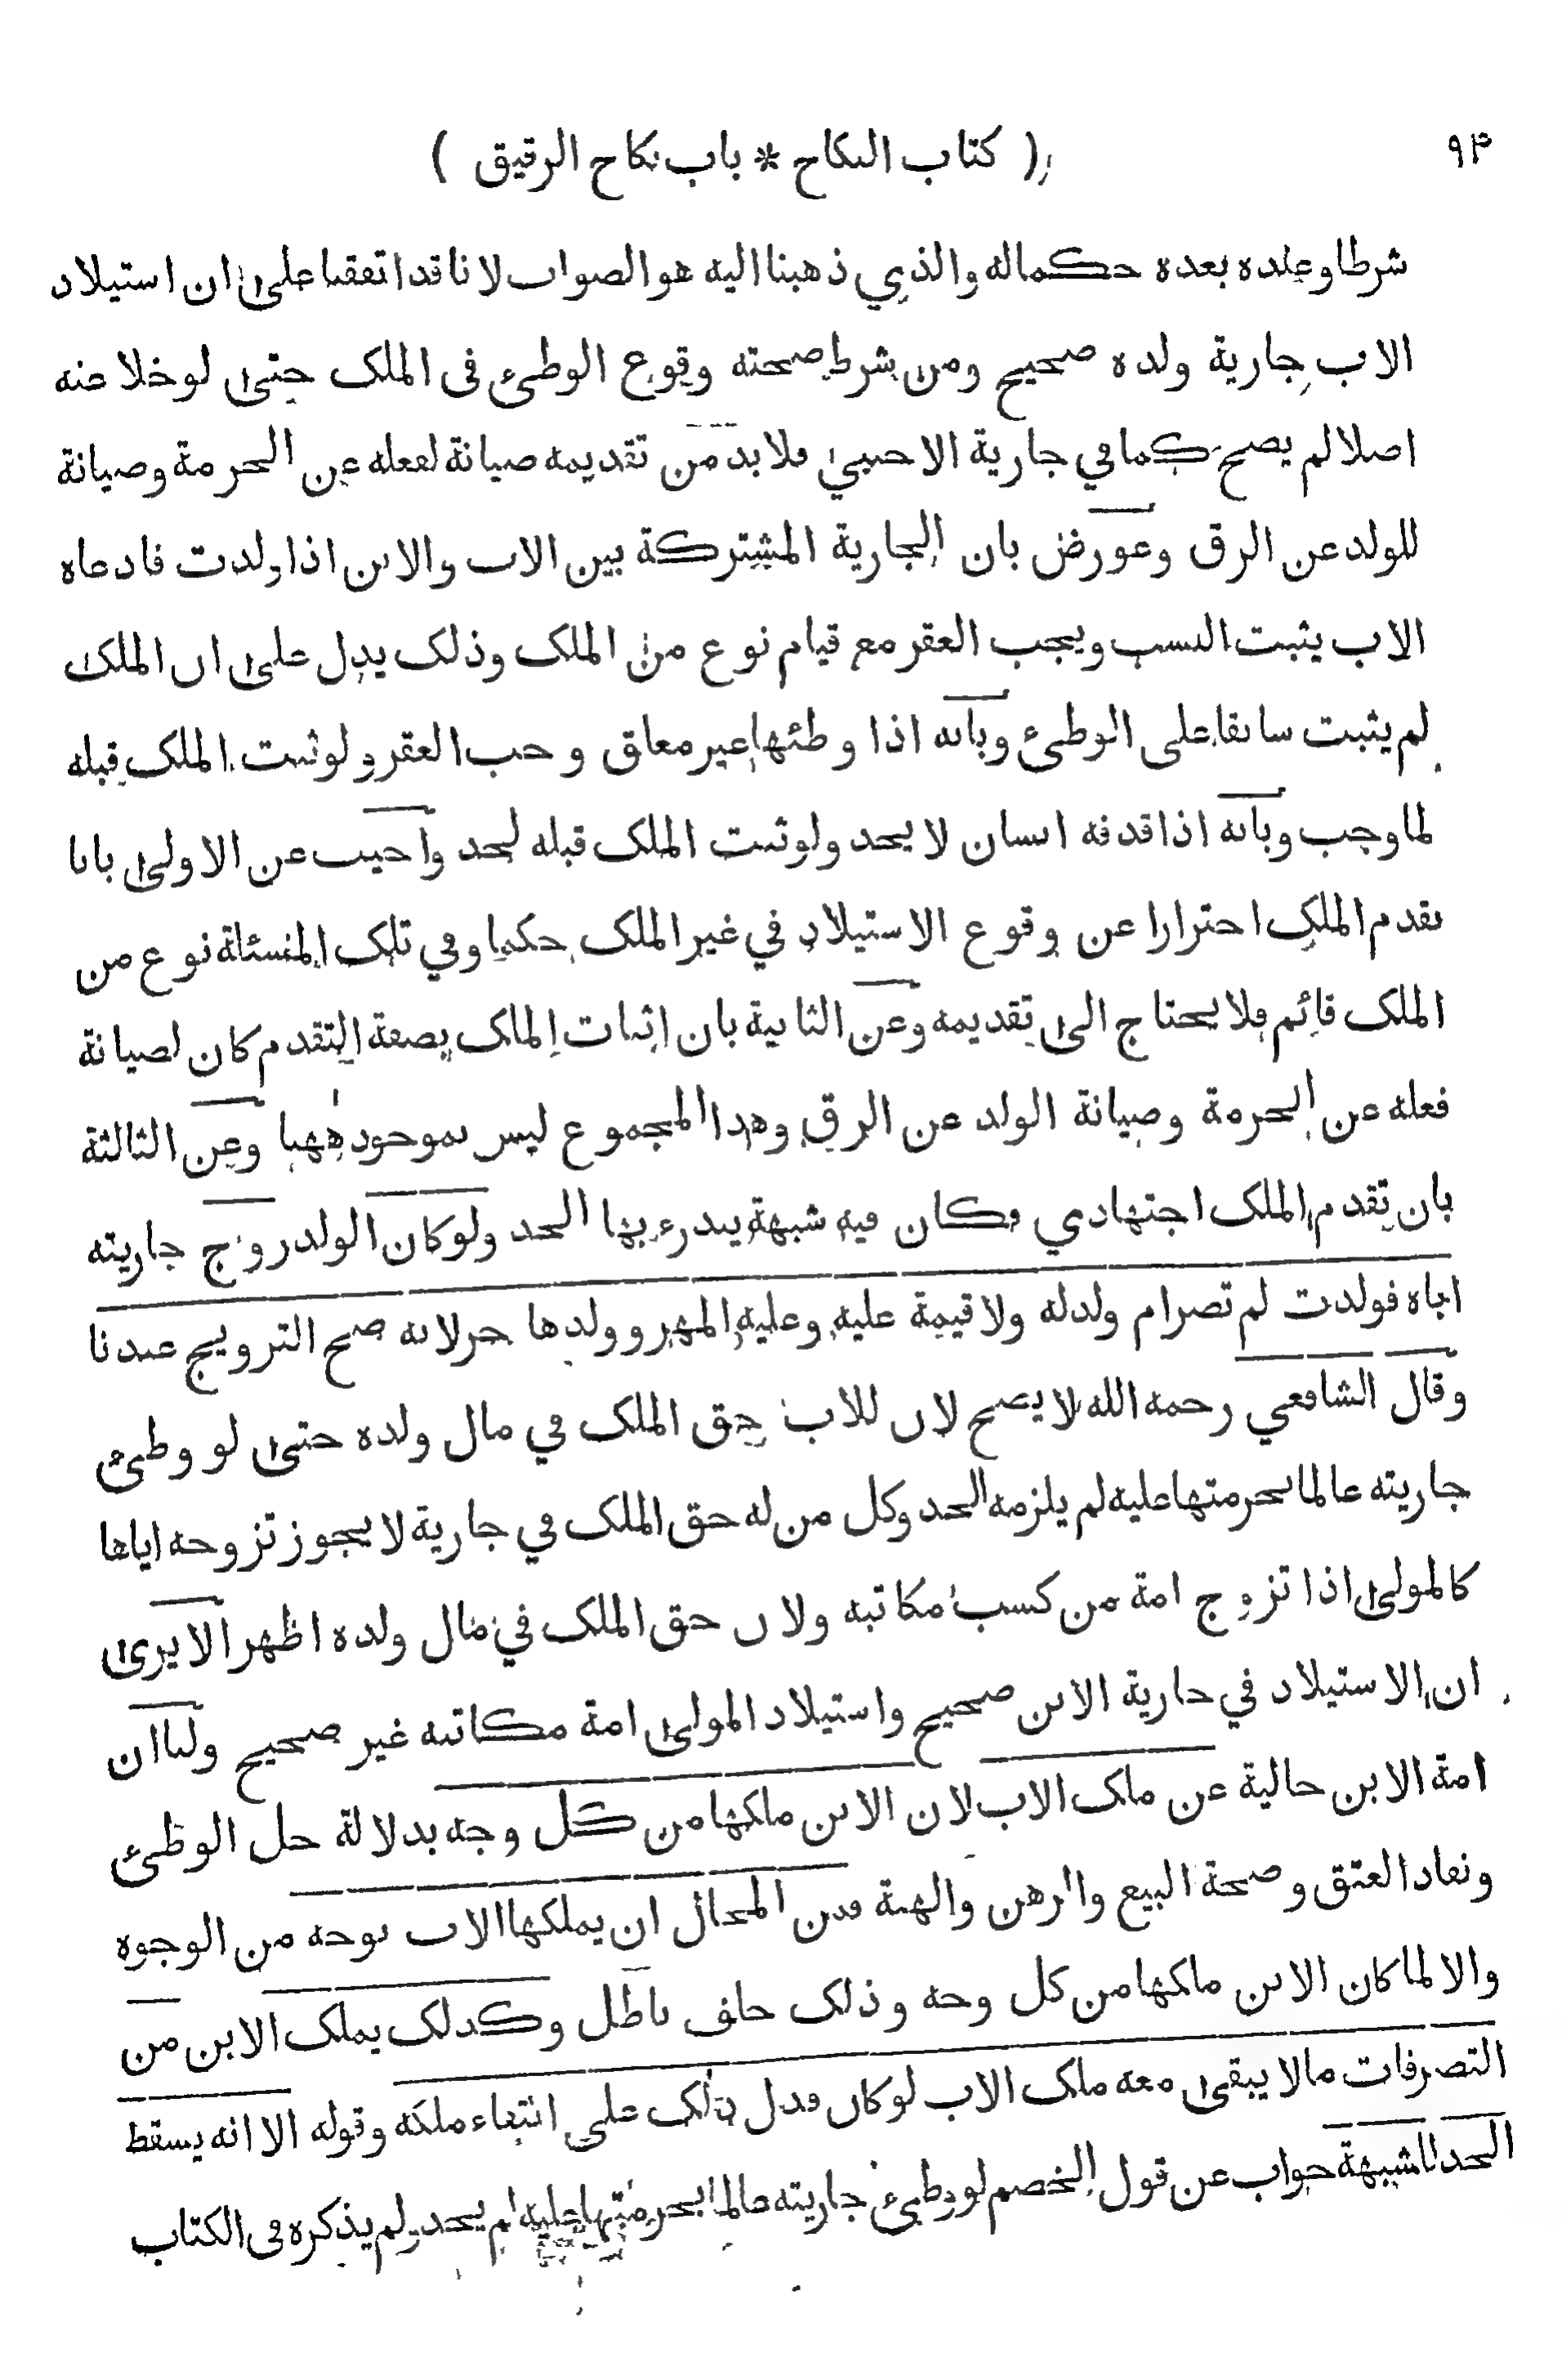 ٩٤ ( كتاب النكاح * باب نكاح الرقيق )
شرطا وعنده بعده حكما له والذي ذهبنا اليه هو الصواب لانا قد اتفقنا على ان استيلاد
الاب جارية ولده صحيح ومن شرط صحته وقوع الوطىء فى الملك حتى لو خلا عنه
اصلا لم يصح كما في جارية الاجنبي فلا بد من تقديمه صيانة لفعله عن الحرمة وصيانة
للولد عن الرق وعورض بان الجارية المشتركة بين الاب والابن اذا ولدت فادعاه
الاب يثبت النسب ويجب العقر مع قيام نوع من الملك وذلك يدل على ان الملك
لم يثبت سابقا على الوطىء وبانه اذا وطئها غير معلق وجب العقر ولو ثبت الملك قبله
لما وجب وبانه اذا قذفه انسان لا يحد ولو ثبت الملك قبله لحد واجيب عن الاولى بانا
نقدم الملك احترازا عن وقوع الاستيلاد في غير الملك حكما وفي تلك المسئلة نوع من
الملك قائم فلا يحتاج الى تقديمه وعن الثانية بان اثبات الملك بصفة التقدم كان لصيانة
فعله عن الحرمة وصيانة الولد عن الرق وهذا المجموع ليس بموجود ههنا وعن الثالثة
بان تقدم الملك اجتهادي فكان فيه شبهة يندرء بها الحد ولو كان الولد زوج جاريته
اباه فولدت لم تصر ام ولد له ولا قيمة عليه وعليه المهر وولدها حر لانه صح التزويج عندنا
وقال الشافعي رحمه الله لا يصح لان للاب حق الملك في مال ولده حتى لو وطىء
جاريته عالما بحرمتها عليه لم يلزمه الحد وكل من له حق الملك في جارية لا يجوز تزوجه اياها
كالمولى اذا تزوج امة من كسب مكاتبه ولان حق الملك في مال ولده اظهر الا يرى
ان الاستيلاد في جارية الابن صحيح واستيلاد المولى امة مكاتبه غير صحيح ولنا ان
امة الابن خالية عن ملك الاب لان الابن ملكها من كل وجه بدلالة حل الوطىء
ونفاد العتق وصحة البيع والرهن والهبة فمن المحال ان يملكها الاب بوجه من الوجوه
والا لما كان الابن ملكها من كل وجه وذلك خلف باطل وكذلك يملك الابن من
التصرفات مالا يبقى معه ملك الاب لو كان فدل ذلك على انتفاء ملكه وقوله الا انه يسقط
الحد للشبهة جواب عن قول الخصم لو وطىء جاريته عالما بحرمتها عليه لم يحد ولم يذكره فى الكتاب